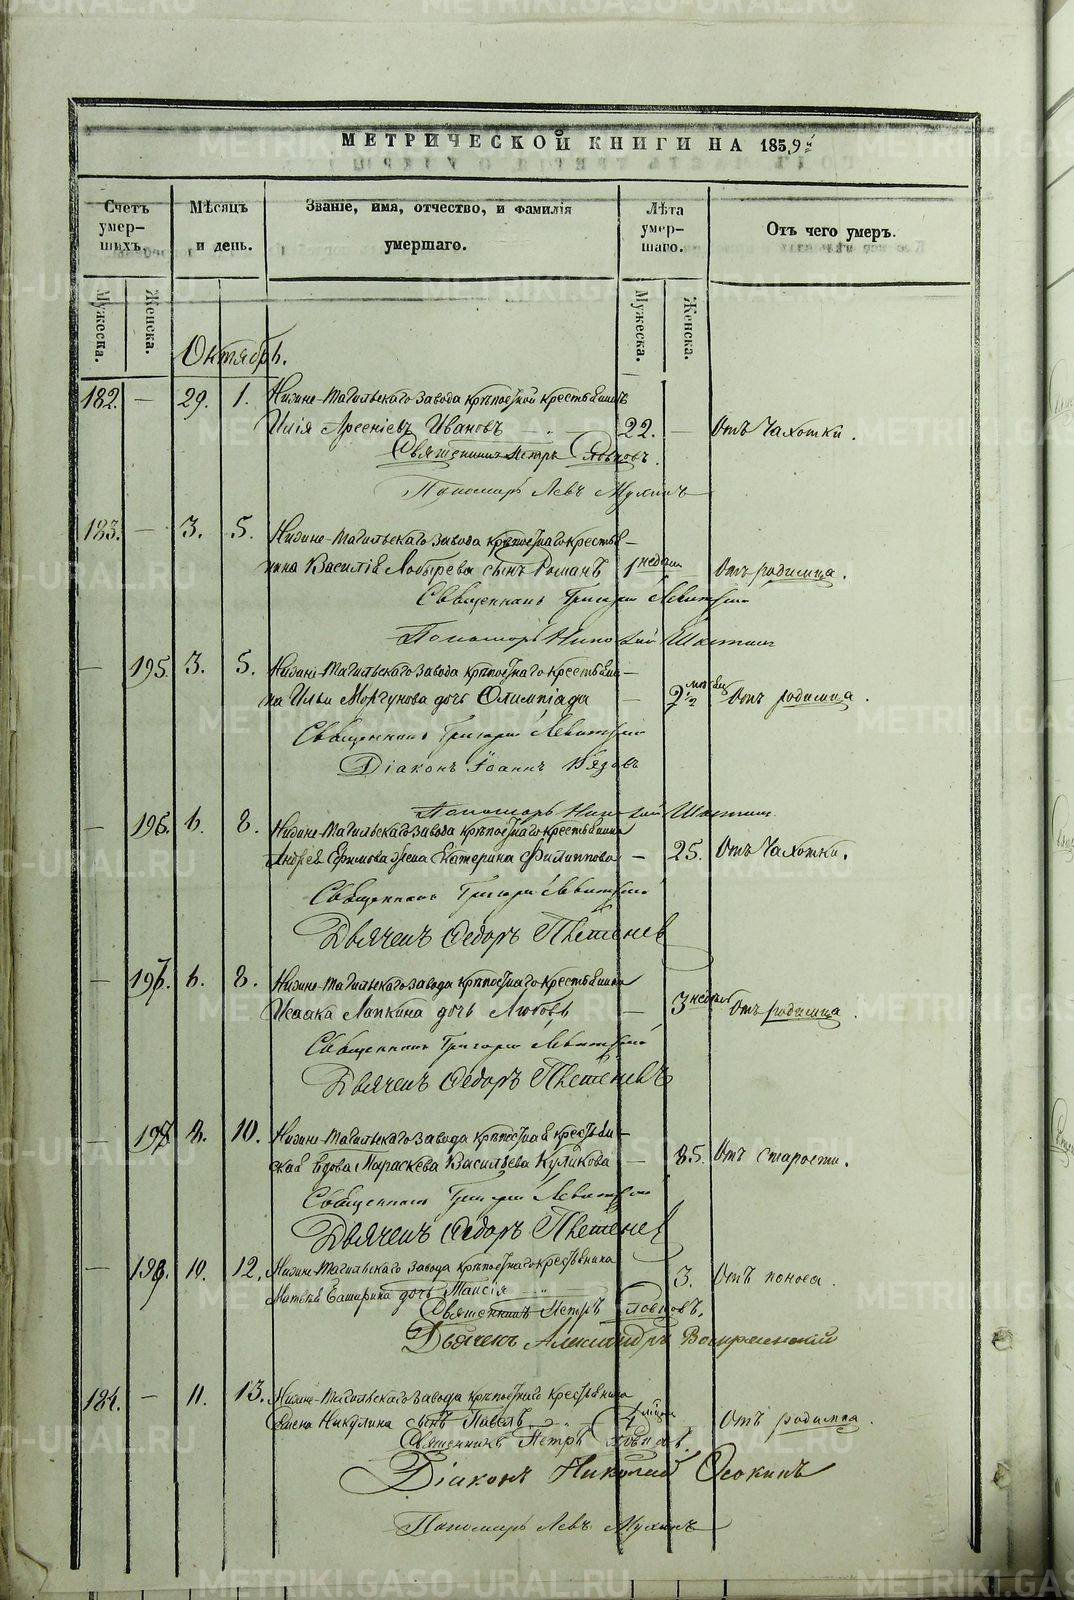 МЕТРИЧЕСКОЙ КНИГИ НА 1859й
Счетъ умер-шихъ.
Мѣсяцъ и день.
Званіе, имя, отчество, и фамилія умершаго.
Лѣта умер-шаго.
Отъ чего умеръ.
Мужеска.
Женска.
Мужеска.
Женска.
Октябрь.
182. — 29. 1. Нижне-Тагильскаго завода крѣпостной крестьянинъ
Илія Арсеніевъ Ивановъ — 22. — Отъ чахотки.
Священникъ Петръ Словцовъ.
Пономарь Левъ Мухинъ
183. — 3. 5. Нижне-Тагильскаго завода крѣпостнаго крестья-
нина Василія Лобырева сынъ Романъ 1 недели Отъ родимца.
Священникъ Григорій Левитскій
Пономарь Николай Шастинъ
— 195. 3. 5. Нижне-Тагильскаго завода крѣпостнаго крестьяни-
на Ильи Моргунова дочь Олимпіада — 2 1/2 Отъ родимца.
Священникъ Григорій Левитскій
Діаконъ Іоаннъ
Пономарь Николай Шастинъ
— 196. 6. 8. Нижне-Тагильскаго завода крѣпостнаго крестьянина
Андрея Ефимова жена Екатерина Филиппова — 25. Отъ чахотки.
Священникъ Григорій Левитскій
Дьячекъ Ѳедоръ
— 197. 6. 8. Нижне-Тагильскаго завода крѣпостнаго крестьянина
Исаака Лапкина дочь Любовь — 3 недели Отъ родимца.
Священникъ Григорій Левитскій
Дьячекъ Ѳедоръ
— 198. 8. 10. Нижне-Тагильскаго завода крѣпостная крестьян-
ская вдова Параскева Васильева Куликова — 85. Отъ старости.
Священникъ Григорій Левитскій
Дьячекъ Ѳедоръ
— 199. 10. 12. Нижне-Тагильскаго завода крѣпостнаго крестьянина
Матвея дочь Таисія 3. Отъ поноса.
Священникъ Петръ Словцовъ.
Дьячекъ Александръ Воскресенскій
184. — 11. 13. Нижне-Тагильскаго завода крѣпостнаго крестьянина
Никулина сынъ Павелъ — Отъ родимца.
Священникъ Петръ Словцовъ.
Діаконъ Николай Осокинъ
Пономарь Левъ Мухинъ
METRIKI.GASO-URAL.RU